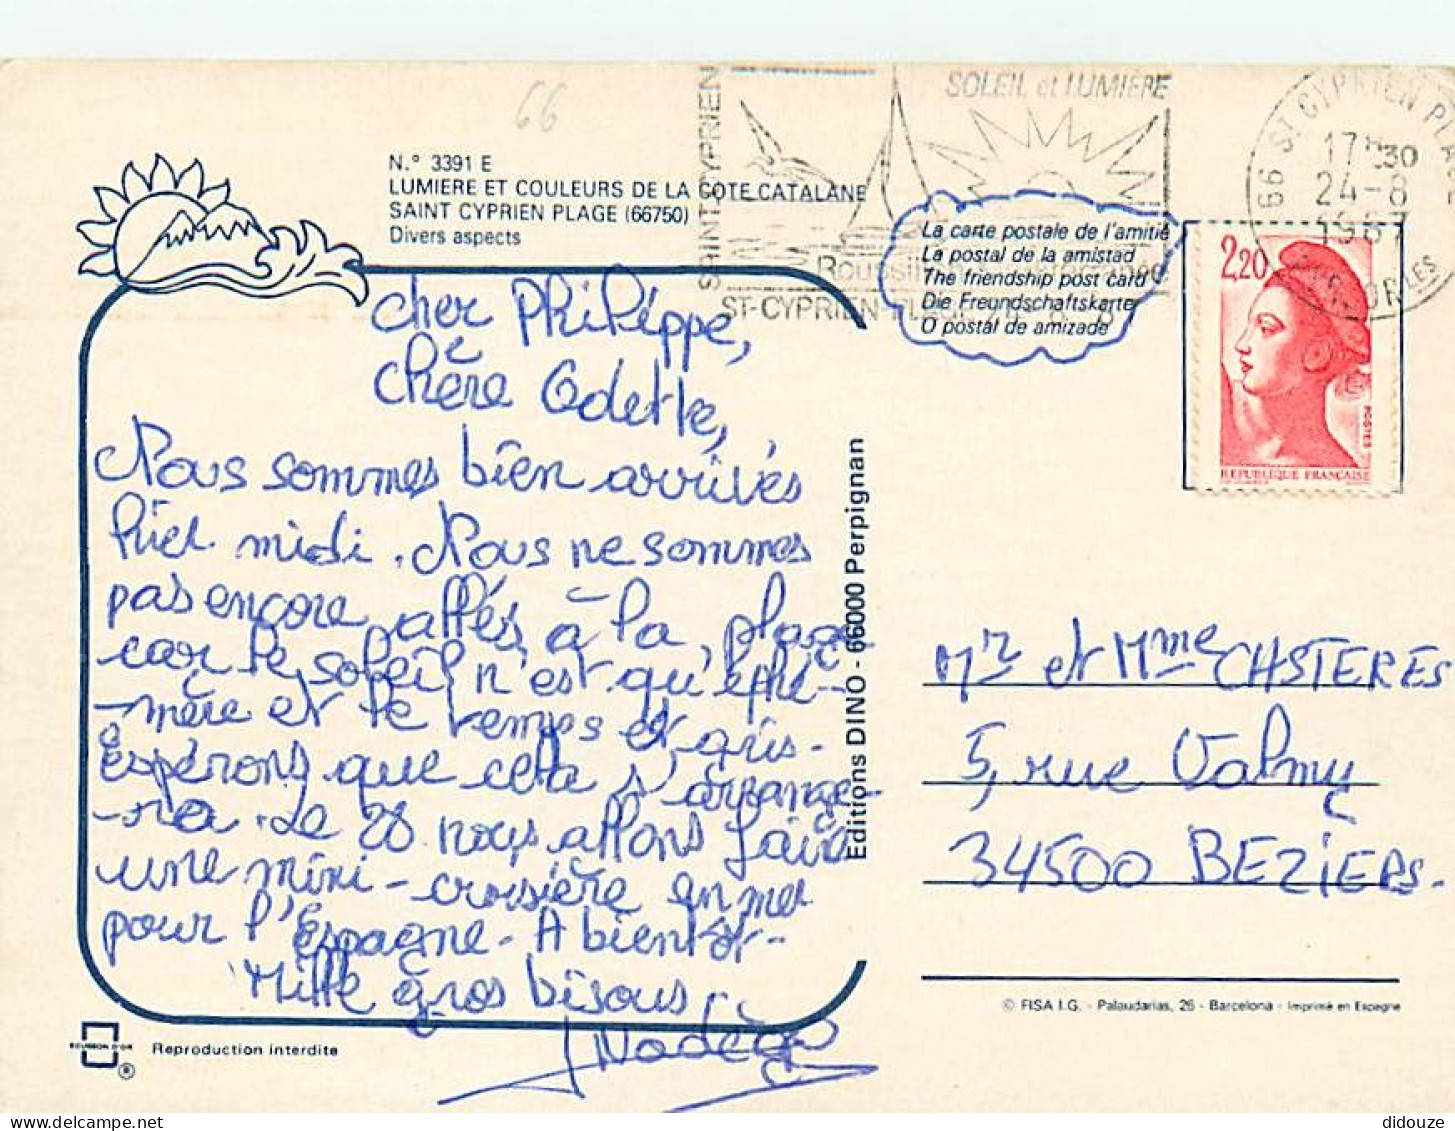 66
N.° 3391 E
LUMIERE ET COULEURS DE LA COTE CATALANE
SAINT CYPRIEN PLAGE (66750)
Divers aspects
SAINT-CYPRIEN
SOLEIL et LUMIÈRE
ST-CYPRIEN-PLAGE
66 ST CYPRIEN PLAGE
17H30
24-8
1987
La carte postale de l'amitié
La postal de la amistad
The friendship post card
Die Freundschaftskarte
O postal de amizade
2,20
POSTES
REPUBLIQUE FRANÇAISE
Cher Philippe,
Chère Odette,
Nous sommes bien arrivés
hier midi. Nous ne sommes
pas encore allés à la plage
car le soleil n'est qu'éphé-
-mère et le temps est gris.
Espérons que cela s'arrange-
-ra. Le 28 nous allons faire
une mini-croisière en mer
pour l'Espagne. A bientôt.
Mille gros bisous.
Nadège
Editions DINO - 66000 Perpignan
Mr et Mme CHSTERES
5, rue Valmy
34500 BEZIERS.
© FISA I.G. - Palaudarias, 26 - Barcelona - Imprimé en Espagne
ECUSSON D'OR
®
Reproduction interdite
didouze